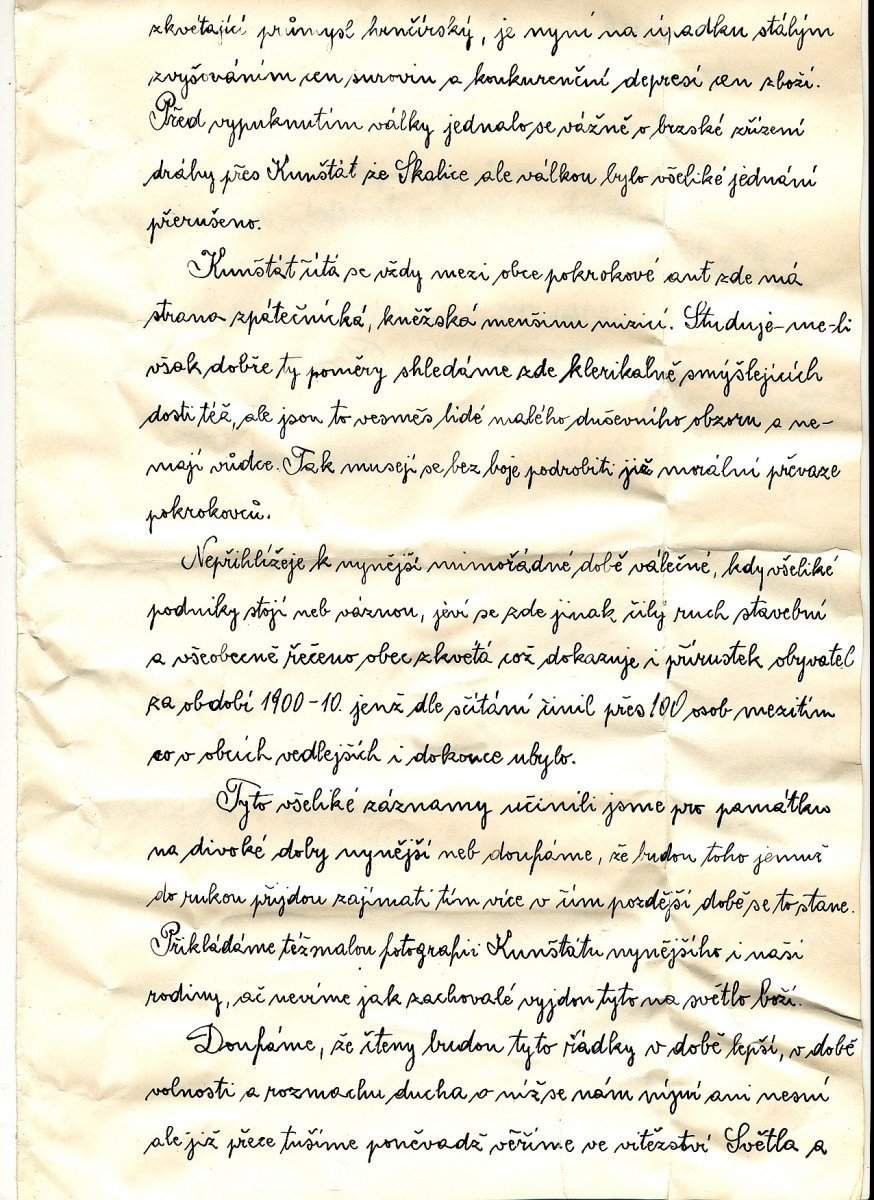 zkvétající průmysl hrnčířský, je nyní na úpadku stálým
zvyšováním cen surovin a konkurenční depresí cen zboží.
Před vypuknutím války jednalo se vážně o brzské zřízení
dráhy přes Kunštát ze Skalice ale válkou bylo všeliké jednání
přerušeno.
Kunštát čítá se vždy mezi obce pokrokové anť zde má
strana zpátečnická, kněžská menšinu mizící. Studuje-me-li
však dobře ty poměry shledáme zde klerikalně smýšlejících
dosti též, ale jsou to vesměs lidé malého duševního obzoru a ne-
mají vůdce. Tak musejí se bez boje podrobiti již morální převaze
pokrokovců.
Nepřihlížeje k nynější mimořádné době válečné, kdy všeliké
podniky stojí neb váznou, jeví se zde jinak čilý ruch stavební
a všeobecně řečeno obec zkvétá což dokazuje i přírustek obyvatel
za období 1900-10. jenž dle sčítání činil přes 100 osob mezitím
co v obcích vedlejších i dokonce ubylo.
Tyto všeliké záznamy učinili jsme pro památku
na divoké doby nynější neb doufáme, že budou toho jemuž
do rukou přijdou zajímati tím více v čím pozdější době se to stane.
Přikládáme též malou fotografii Kunštátu nynějšího i naší
rodiny, ač nevíme jak zachovalé vyjdou tyto na světlo boží.
Doufáme, že čteny budou tyto řádky v době lepší, v době
volnosti a rozmachu ducha o níž se nám nyní ani nesní
ale již přece tušíme poněvadž věříme ve vítězství Světla a